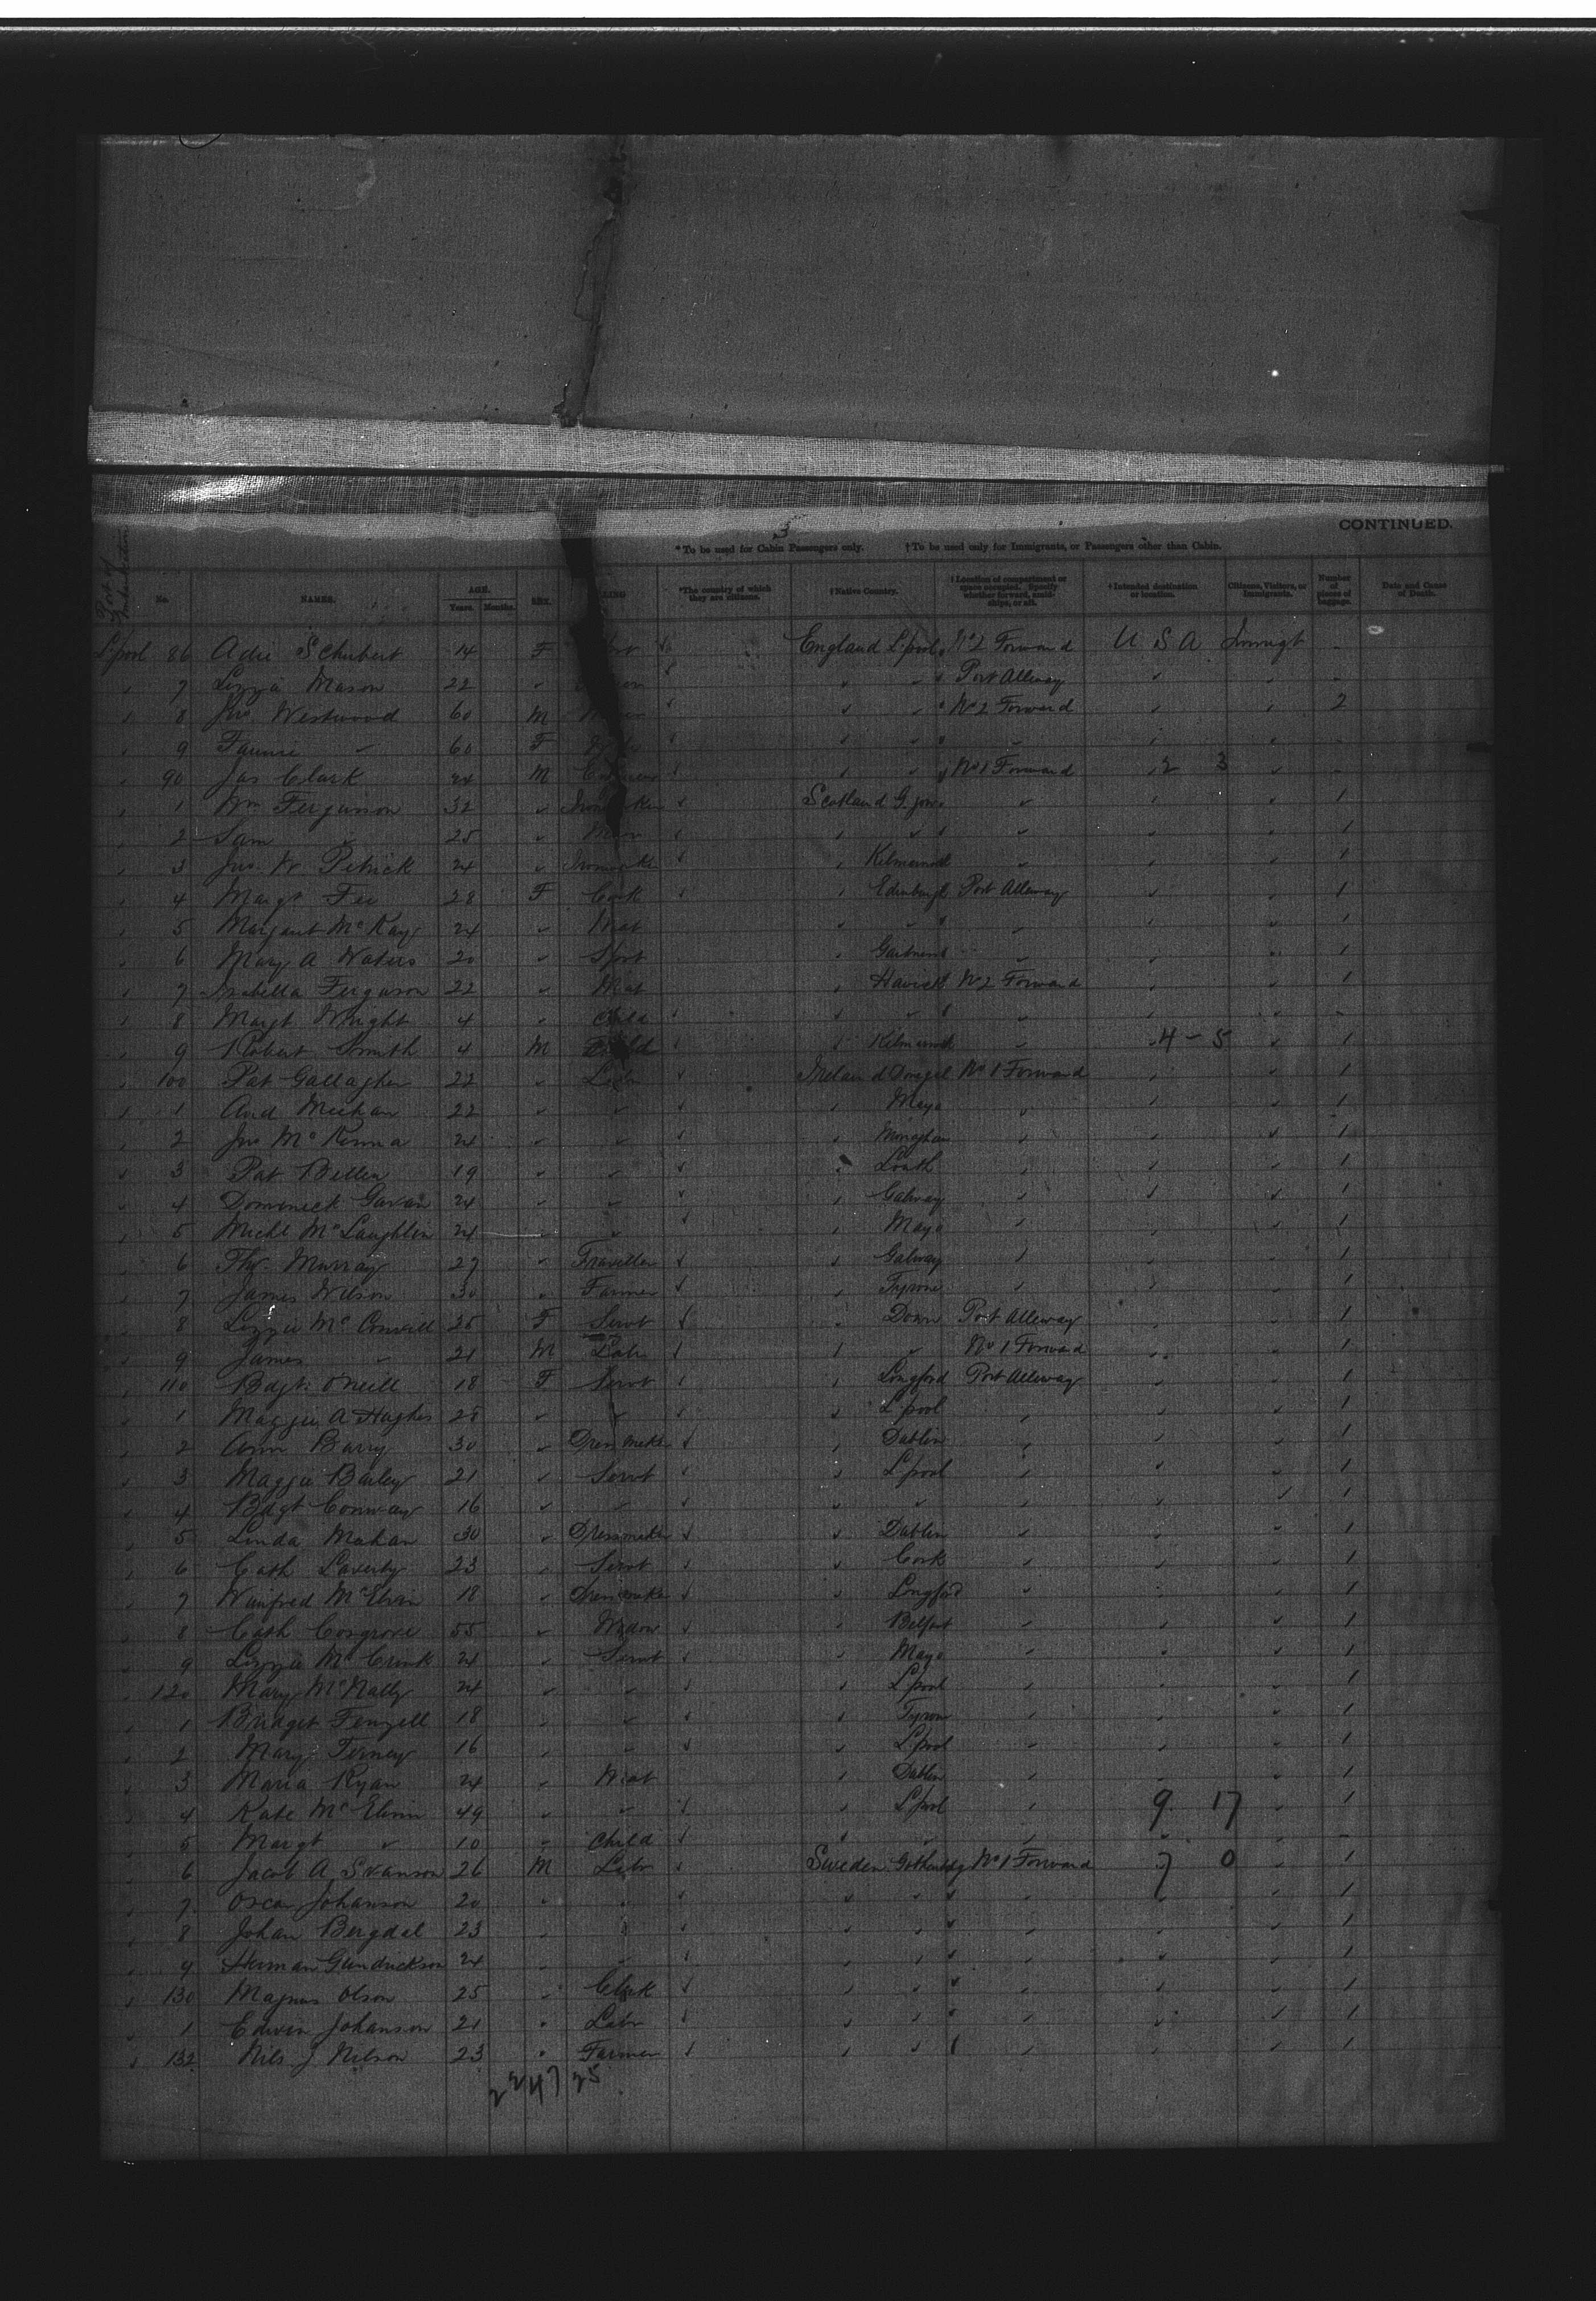 3
CONTINUED.
*To be used for Cabin Passengers only. †To be used only for Immigrants, or Passengers other than Cabin.
Port of Embarkation
No. NAMES. AGE. Years. Months. SEX. *The country of which they are citizens. †Native Country. †Location of compartment or space occupied. Specify whether forward, amidships, or aft. †Intended destination or location. Citizens, Visitors, or Immigrants. Number of pieces of baggage. Date and Cause of Death.
L'pool 86 Adie Schubert 14 F England L'pool No 2 Forward U S A Immigt -
7 Lizzie Mason 22 Port Alleway
8 Jno. Westwood 60 M No 2 Forward 2
9 Fannie 60 F
90 Jas Clark 24 M No 1 Forward 2 3
1 Wm Ferguson 32 Scotland 1
2 Sam 25 1
3 Jno. W Petrick 24 Kilmarnock 1
4 Margt Fee 28 F Cook Edinburgh Port Alleway 1
5 Margaret McKay 24 1
6 Mary A Waters 20 1
7 Isabella Ferguson 22 Hawick No 2 Forward 1
8 Margt Wright 4 Child -
9 Robert Smith 4 M Child Kilmarnock 4 - 5 1
100 Pat Gallagher 22 Labr Ireland Donegal No 1 Forward 1
1 And Meehan 22 Mayo 1
2 Jno McKenna 24 Monaghan 1
3 Pat Bellew 19 Louth 1
4 Domenick Gavan 24 Galway 1
5 Michl McLaughlin 24 Mayo 1
6 Thos. Murray 27 Traveller Galway 1
7 James Wilson 30 Farmer Tyrone 1
8 Lizzie McConvill 25 F Servt Down Port Alleway 1
9 James 21 M Labr No 1 Forward 1
110 Bdgt. O'Neill 18 F Servt Longford Port Alleway 1
1 Maggie A Hughes 28 L'pool 1
2 Ann Barry 30 Dressmaker Dublin 1
3 Maggie Barley 21 Servt L'pool 1
4 Bdgt Conway 16 1
5 Linda Mahan 30 Dressmaker Dublin 1
6 Cath Laverty 23 Servt Cork 1
7 Winifred McElvin 18 Dressmaker Longford 1
8 Cath Cosgrove 55 Widow Belfast 1
9 Lizzie McCrink 24 Servt Mayo 1
120 Mary McNally 24 L'pool 1
1 Bridget Fenzell 18 Tyrone 1
2 Mary Terney 16 L'pool 1
3 Maria Ryan 24 Dublin 1
4 Kate McElvin 49 L'pool 9 17 1
5 Margt 10 Child -
6 Jacob A Swanson 26 M Labr Sweden No 1 Forward 7 0 1
7 Oscar Johanson 20 1
8 Johan Bergdal 23 1
9 Herman Gundrickson 24 1
130 Magnus Olson 25 Clerk 1
1 Edwin Johanson 21 Labr 1
132 Nils J Nilson 23 Farmer 1
22 47 25